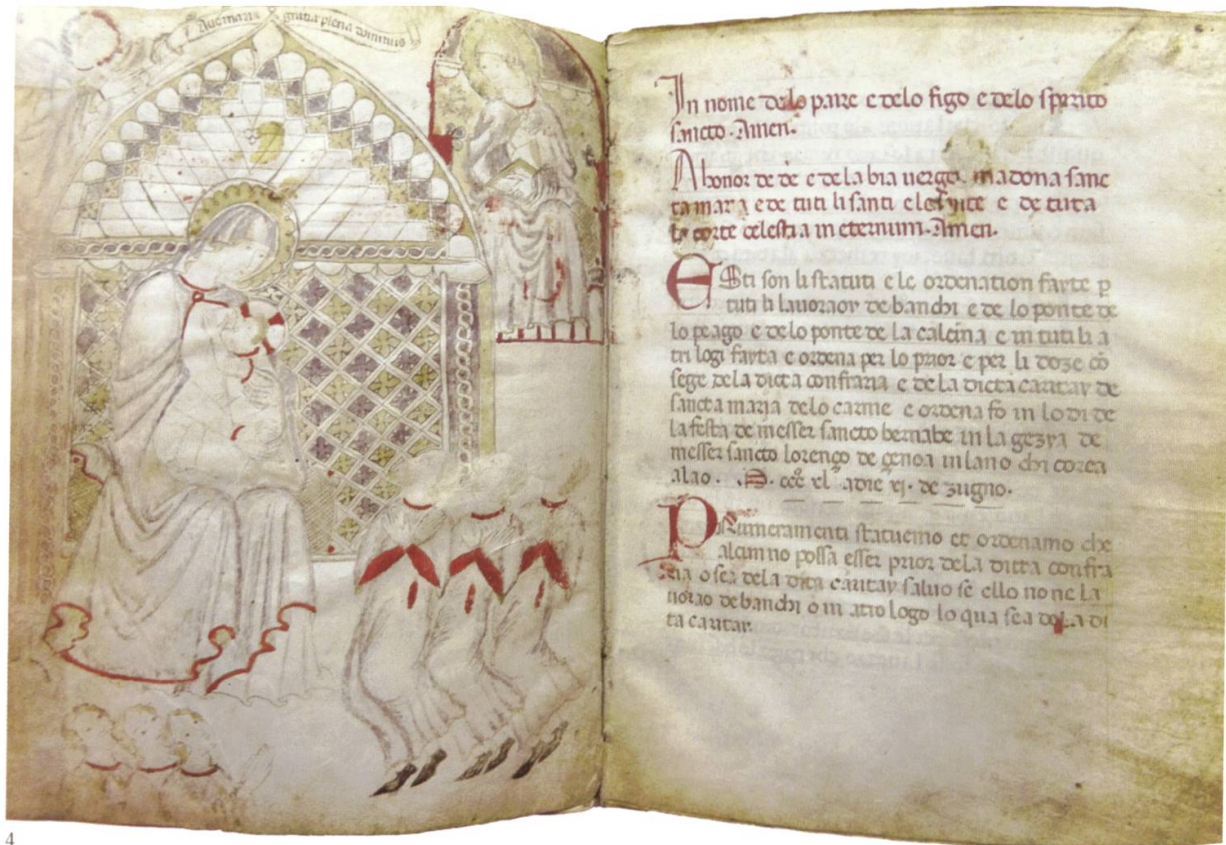 Aue maria gratia plena dominus
In nome de lo paire e delo figo e delo spirito
sancto. Amen.
A honor de de e de la bia uergē madona sanc
ta maria e de tuti li santi e le sante e de tuta
la corte celestia in eternum. Amen.
Esti son li statuti e le ordenation fayte p
tuti li lauoraoy de banchi e de lo ponte de
lo peago e de lo ponte de la calcina e in tuti li a
tri logi fayta e ordena per lo prior e per li doze cō
sege dela dicta confraria e de la dicta caritay de
sancta maria delo carme e ordena fo in lo di de
la festa de messer sancto bernabe in la gezya de
messer sancto lorenço de genoa in lano chi corea
alao. M. ccc xl adie xj. de zugno.
Prumeramenti statuemo et ordenamo che
alcun no possa esser prior dela ditta confra
ria o sea dela dita caritay saluo se ello no ne la
uorao de banchi o in atro logo lo qua sea de la di
ta caritay.
4